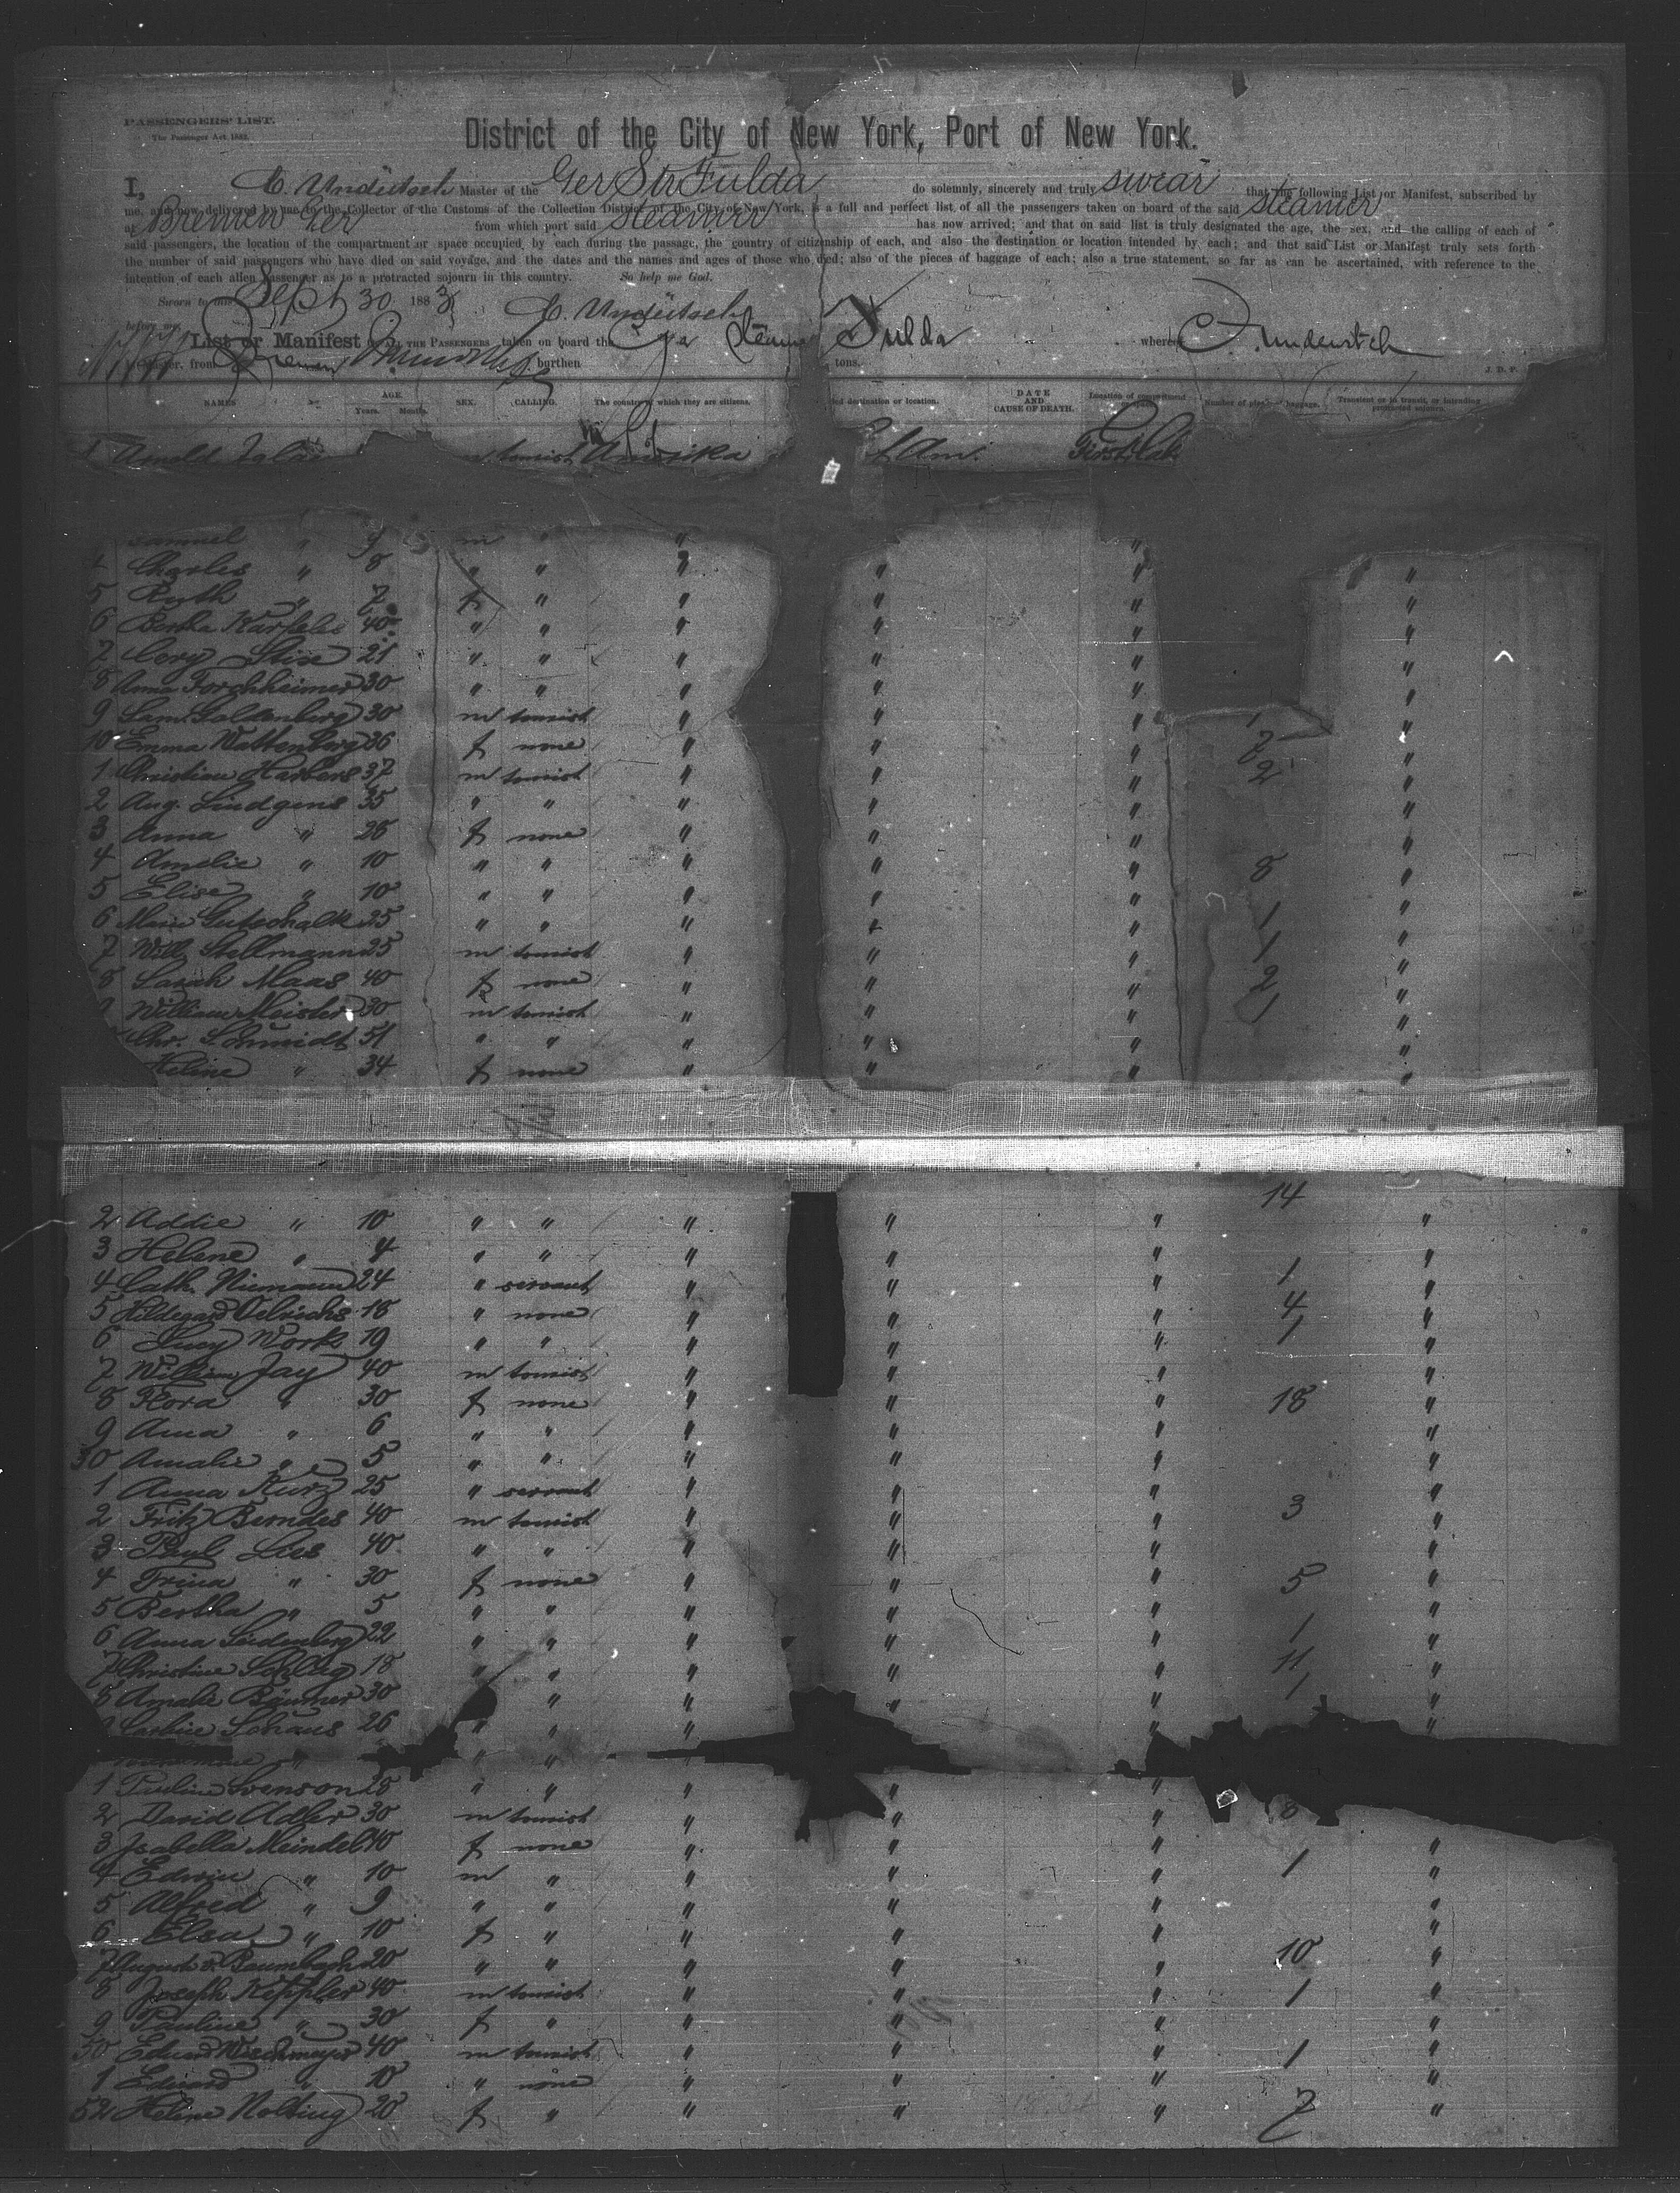 PASSENGERS' LIST.
The Passenger Act, 1882.
District of the City of New York, Port of New York.
I, C. Undeütsch Master of the Ger Str Fulda do solemnly, sincerely and truly swear that the following List or Manifest, subscribed by
me, and now delivered by me to the Collector of the Customs of the Collection District of the City of New York, is a full and perfect list of all the passengers taken on board of the said steamer
at Bremen Ger from which port said steamer has now arrived; and that on said list is truly designated the age, the sex, and the calling of each of
said passengers, the location of the compartment or space occupied by each during the passage, the country of citizenship of each, and also the destination or location intended by each; and that said List or Manifest truly sets forth
the number of said passengers who have died on said voyage, and the dates and the names and ages of those who died; also of the pieces of baggage of each; also a true statement, so far as can be ascertained, with reference to the
intention of each alien passenger as to a protracted sojourn in this country. So help me God.
Sworn to this Sept 30 1883 C. Undeütsch
before me
List or Manifest OF ALL THE PASSENGERS taken on board the Ger Steamer Fulda whereof C. Undeütsch
is Master, from Bremen burthen tons.
J. D. P.
NAMES AGE. Years. Months. SEX. CALLING. The country of which they are citizens. destination or location. DATE AND CAUSE OF DEATH. Location of compartment Number of pieces of baggage. Transient or in transit, or intending protracted sojourn.
Arnold tourist Amerika Am.
Samuel " 9 m " "
4 Charles " 8 " " " " " "
5 Ruth " 7 f " " " " "
6 Bertha Karpeles 40 " " " " " "
7 Cory Stix 21 " " " " " "
8 Anna Forchheimer 30 " " " " " "
9 Sam. Goldenberg 30 m tourist " " " 1 "
10 Emma Wattenberg 36 f none " " " 7 "
1 Christian Harbers 37 m tourist " " " 2 "
2 Aug. Lindgens 35 " " " " " "
3 Anna " 26 f none " " " "
4 Amelie " 10 " " " " " 8 "
5 Elise " 10 " " " " " "
6 Marie Gutschalk 25 " " " " " 1 "
7 Will. Stellmann 25 m tourist " " " 1 "
8 Sarah Maas 40 f none " " " 2 "
9 William Meister 30 m tourist " " " 1 "
Chr. Schmidt 51 " " " " " "
Heline " 34 f none " " " "
14
2 Addie " 10 " " " " " "
3 Helene " 4 " " " " " "
4 Cath. Niemann 24 " servant " " " 1 "
5 Hildegard Oelrichs 18 " none " " " 4 "
6 Lucy Work 19 " " " " " 1 "
7 William Jay 40 m tourist " " " "
8 Flora " 30 f none " " " 18 "
9 Anna " 6 " " " " " "
30 Amalie " 5 " " " " " "
1 Anna Kurz 25 " servant " " " "
2 Fritz Berndes 40 m tourist " " " 3 "
3 Paul Lies 40 " " " " " "
4 Trina " 30 f none " " " 5 "
5 Bertha " 5 " " " " " "
6 Anna Seidenberg 22 " " " " " 1 "
7 Christine Schlag 18 " " " " " 11 "
8 Amalie Bäumer 30 " " " " 1 "
9 Carline Schaus 26 " " " " " "
" " "
1 Pauline Svenson 28 " " " " "
2 David Adler 30 m tourist " " "
3 Isabella Meindel 40 f none " " " "
4 Edwin " 10 m " " " " 1 "
5 Alfred " 9 " " " " " "
6 Elsa " 10 f " " " " "
7 August v. Baumbach 20 " " " " " 10 "
8 Joseph Keppler 40 m tourist " " " 1 "
9 Pauline " 30 f " " " " "
50 Eduard Wischmeyer 40 m tourist " " " 1 "
1 Edward " 10 " none " " " "
52 Helene Nolting 20 f " " " " 7 "